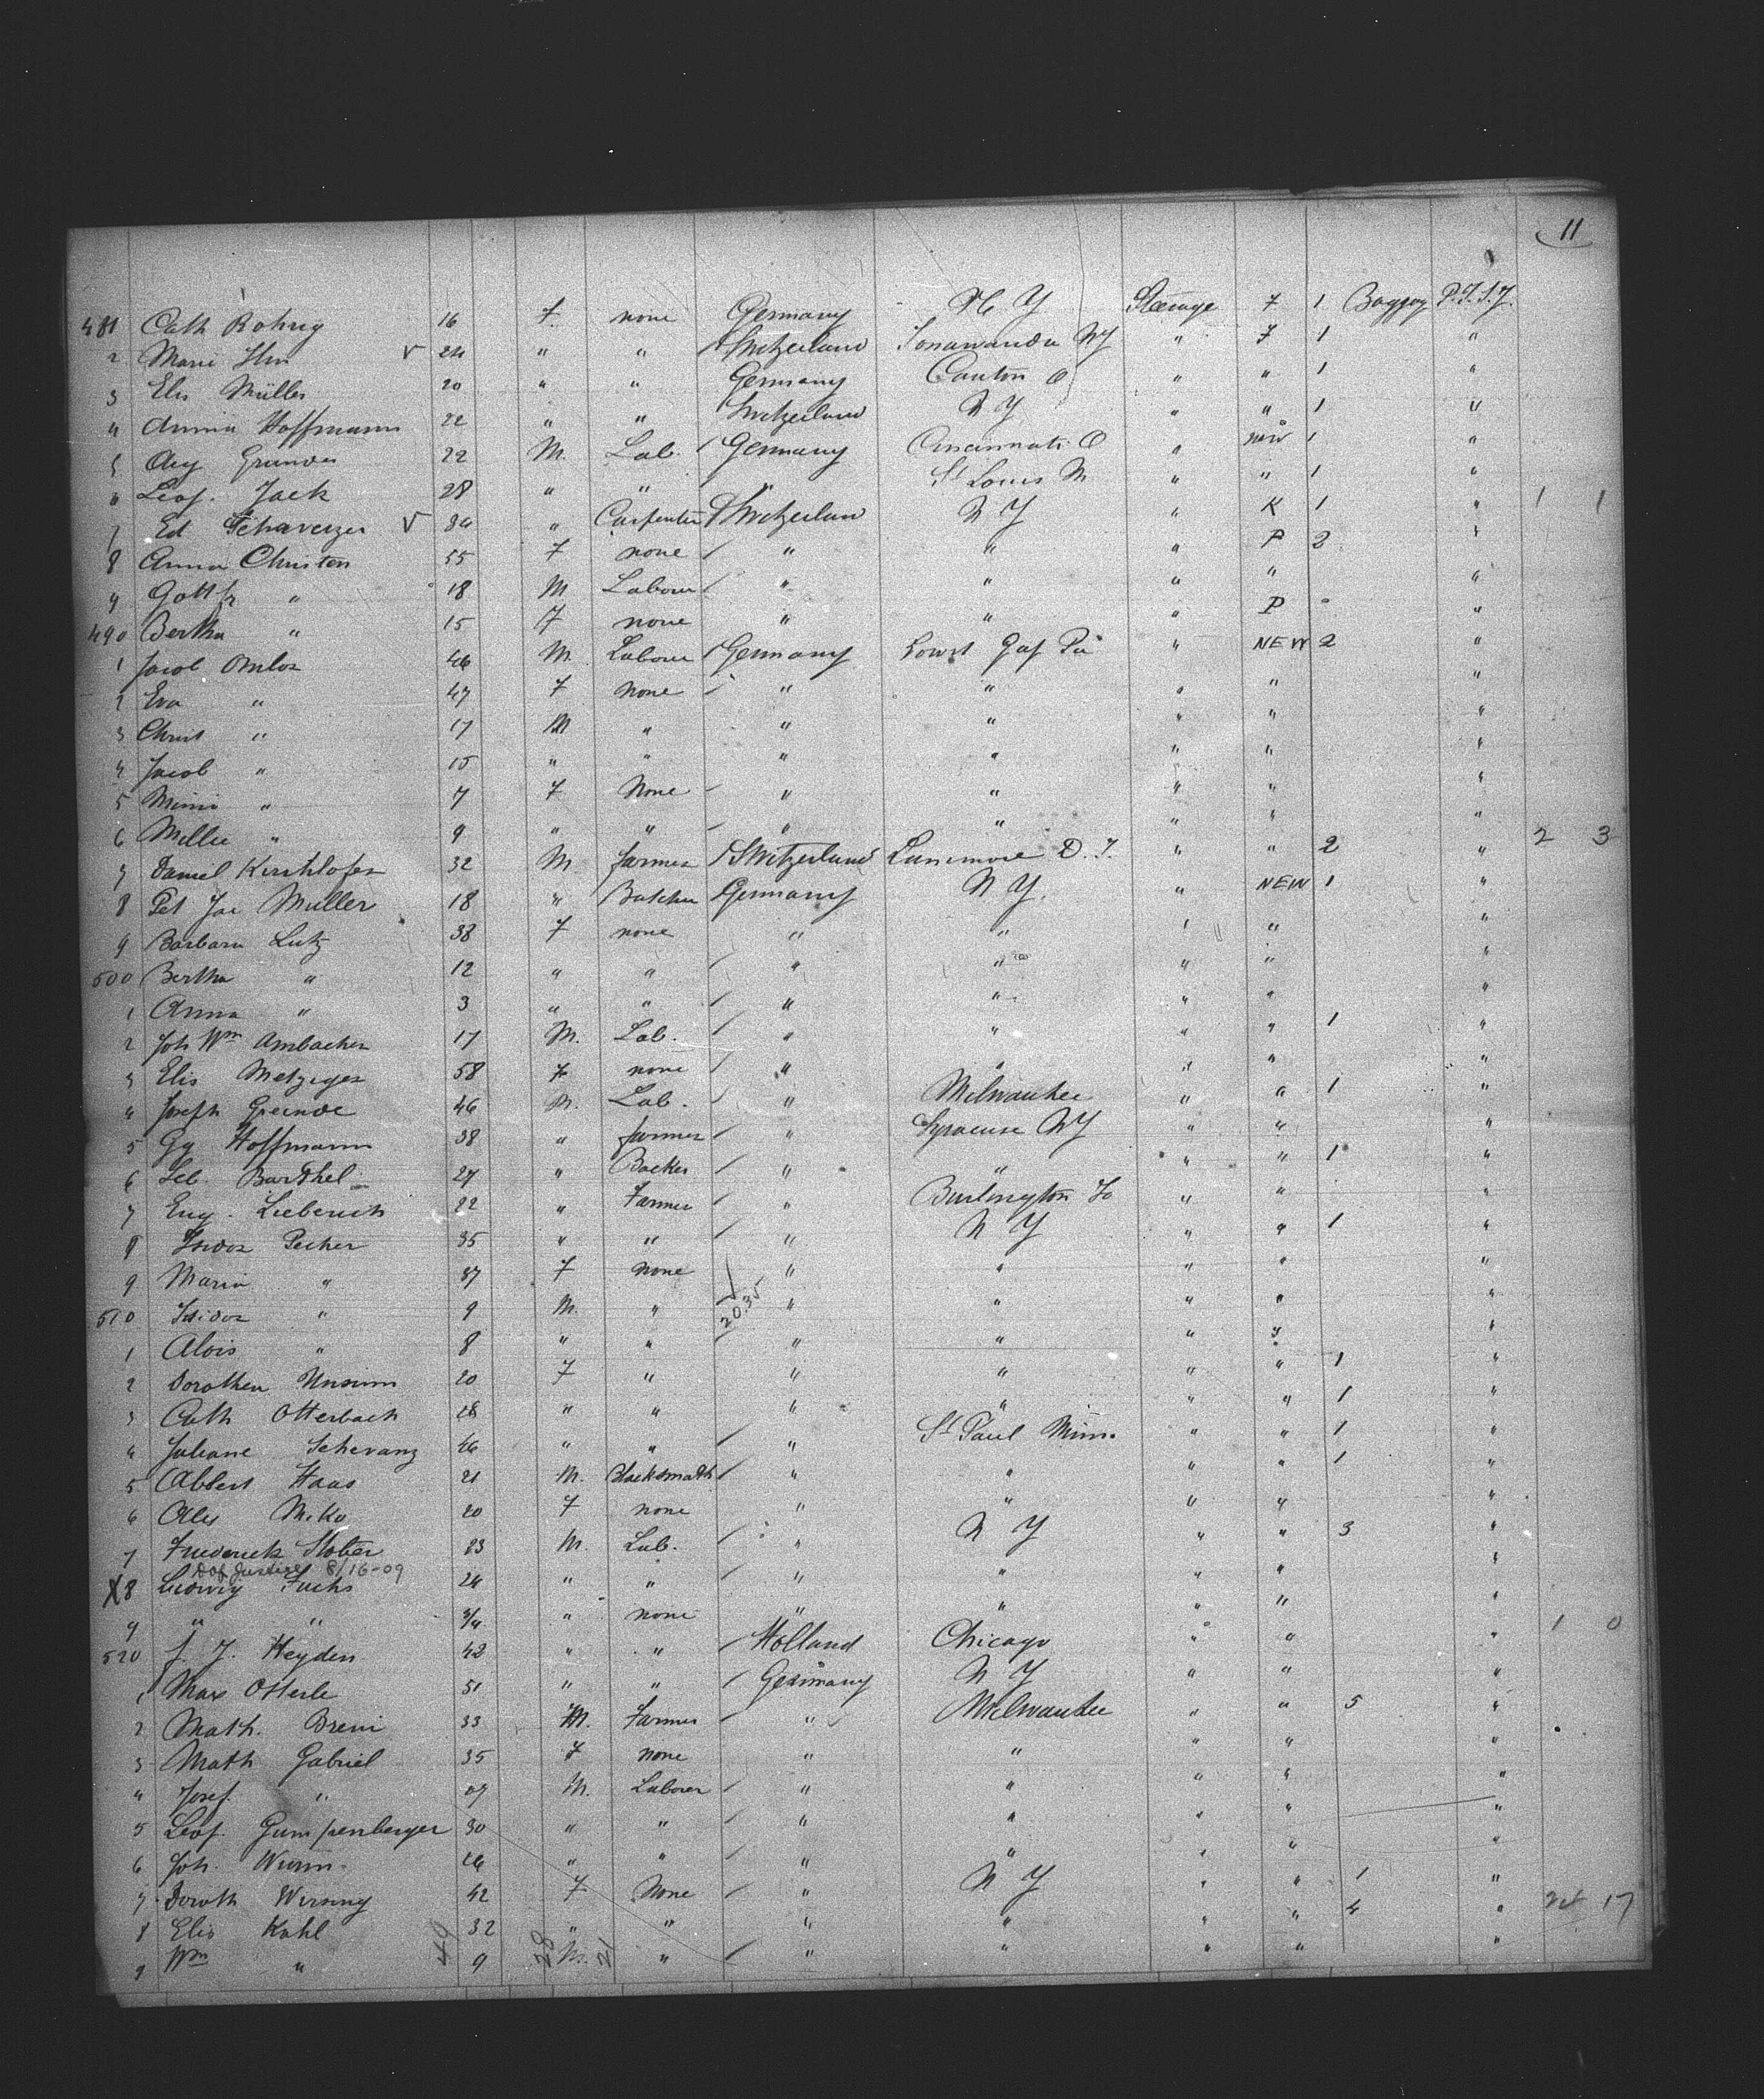 11
481 Cath Rohrig 16 f. none Germany N. Y Steerage F 1 Baggag P.T.S.J.
2 Marie V 24 " " Switzerland Tonawanda NY " F 1 "
3 Elis Müller 20 " " Germany Canton O " " 1 "
4 Anna Hoffmann 22 " " Switzerland N Y " " 1 "
5 Aug 22 M. Lab. Germany Cincinnati O " new 1 "
6 Leop. Jack 28 " " " St Louis M " " 1 " 1 1
7 Ed V 34 " Carpenter Switzerlan N Y " K 1 "
8 Anna Christen 55 F none " " " P 2 "
9 Gottfr " 18 M Labour " " " " "
490 Bertha " 15 F none " " " P "
1 Jacob 46 M. Labour Germany Gap Pa " NEW 2 "
2 Eva " 47 F none " " " " "
3 Christ " 17 M " " " " " "
4 Jacob " 15 " " " " " " "
5 Mimi " 7 F None " " " " "
6 Millie " 9 " " " " " " "
7 Daniel Kirchhofer 32 M. farmer Switzerland D. T. " " 2 " 2 3
8 Pet Jac Muller 18 " Butcher Germany N Y. " NEW 1 "
9 Barbara Lutz 38 F none " " " " "
500 Bertha " 12 " " " " " " "
1 Anna " 3 " " " " " " "
2 Joh Wm Ambacher 17 M. Lab. " " " " 1 "
3 Elis Metzger 58 F none " " " " "
4 Joseph 46 M. Lab. " Milwaukee " " 1 "
5 Gg Hoffmann 38 " farmer " Syracuse NY " " "
6 Seb. Barthel 27 " Backer " " " " 1 "
7 Eug. Lieberich 22 " Farmer " Burlington Jo " " "
8 Isidor Pecher 35 " " " N Y " " 1 "
9 Maria " 37 F none " " " " "
20.35
510 Isidor " 9 M. " " " " " "
1 Alois " 8 " " " " " " "
2 Dorothea 20 F " " " " " 1 "
3 Cath Otterbach 28 " " " " " " 1 "
4 Juliane 46 " " " St Paul Minn. " " 1 "
5 Albert Haas 21 M. Blacksmith " " " " 1 "
6 20 F none " " " " "
7 Frederick 23 M. Lab. " N Y " " 3 "
D of Justice 8/16-09
X8 Ludwig Fuchs 24 " " " " " " "
9 " " 3/4 " none " " " " "
520 J. J. Heyden 42 " " Holland Chicago " " " 1 0
1 Max Otterle 51 " " Germany N Y " " "
2 Math. Breni 33 M. Farmer " Milwaukee " " 5 "
3 Math Gabriel 35 F none " " " " "
4 Josef " 09 M. Laborer " " " " "
5 Leop. Gumppenberger 30 " " " " " " "
6 Joh. Wurm 26 " " " " " " "
7 Doroth 42 F None " N Y " " 1 "
8 Elis Kohl 32 " " " " " " 4 " 17
9 Wm " 9 M. " " " " " "
49 28 21